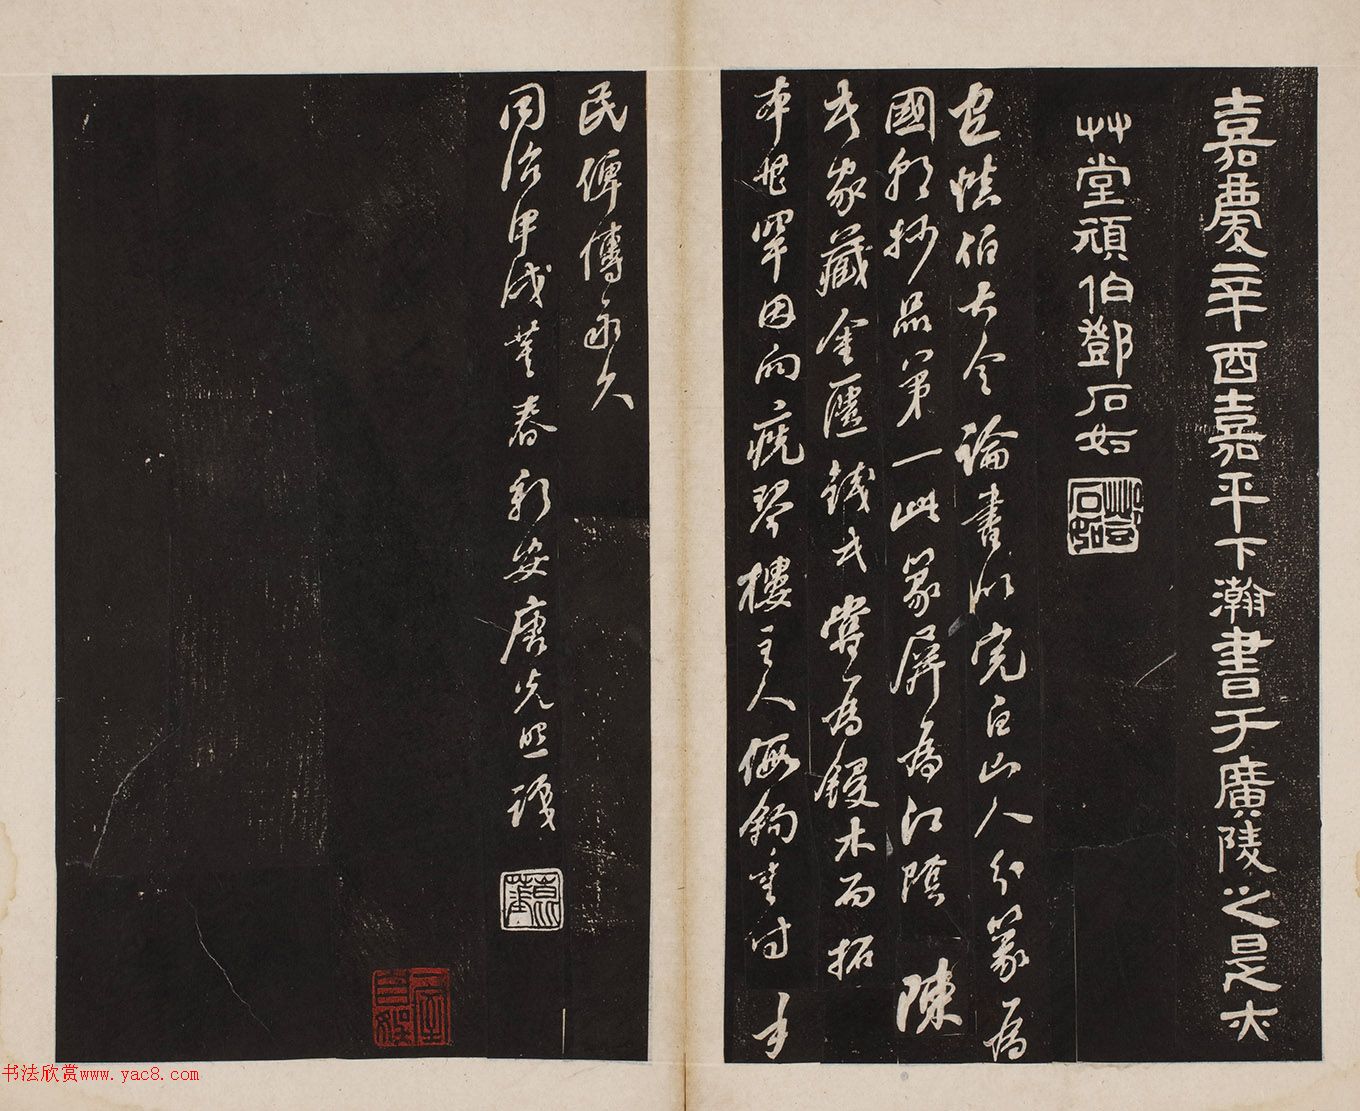 嘉慶辛酉嘉平下澣書于廣陵之是亦
艸堂頑伯鄧石如
鄧石如
包慎伯大令論書以完白山人分篆為
國朝妙品第一此篆屏為江陰陳
氏家藏金匱錢氏嘗為鋟木而拓
本甚罕因向琴樓主人假鉤重付手
民俾傳永久
同治甲戌莫春新安唐光照識
书法欣赏www.yac8.com